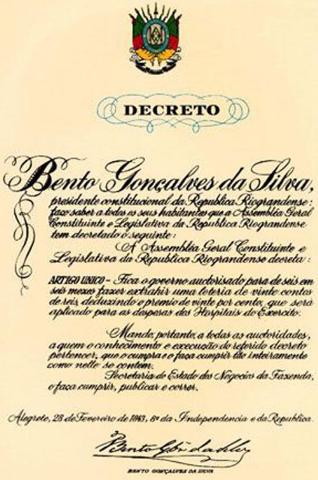 DECRETO
Bento Gonçalves da Silva,
presidente constitucional da Republica Riograndense:
faço saber a todos os seus habitantes que a Assembléa Geral
Constituinte e Legislativa da Republica Riograndense
tem decretado o seguinte:
A Assembléa Geral Constituinte e
Legislativa da Republica Riograndense decreta:
ARTIGO UNICO - Fica o governo auctorisado para de seis em
seis mezes fazer extrahir uma loteria de vinte contos
de reis, deduzindo o premio de vinte por cento, que será
applicado para as despesas dos Hospitais do Exercito.
Manda, portanto, a todas as auctoridades,
a quem o conhecimento e execução do referido decreto
pertencer, que o cumpra e o faça cumprir tão inteiramente
como nelle se contem.
Secretaria de Estado dos Negocios da Fazenda,
o faça cumprir, publicar e correr.
Alegrete, 28 de Fevereiro de 1843, 8º da Independencia e da Republica.
Bento Glz da Silva
BENTO GONÇALVES DA SILVA